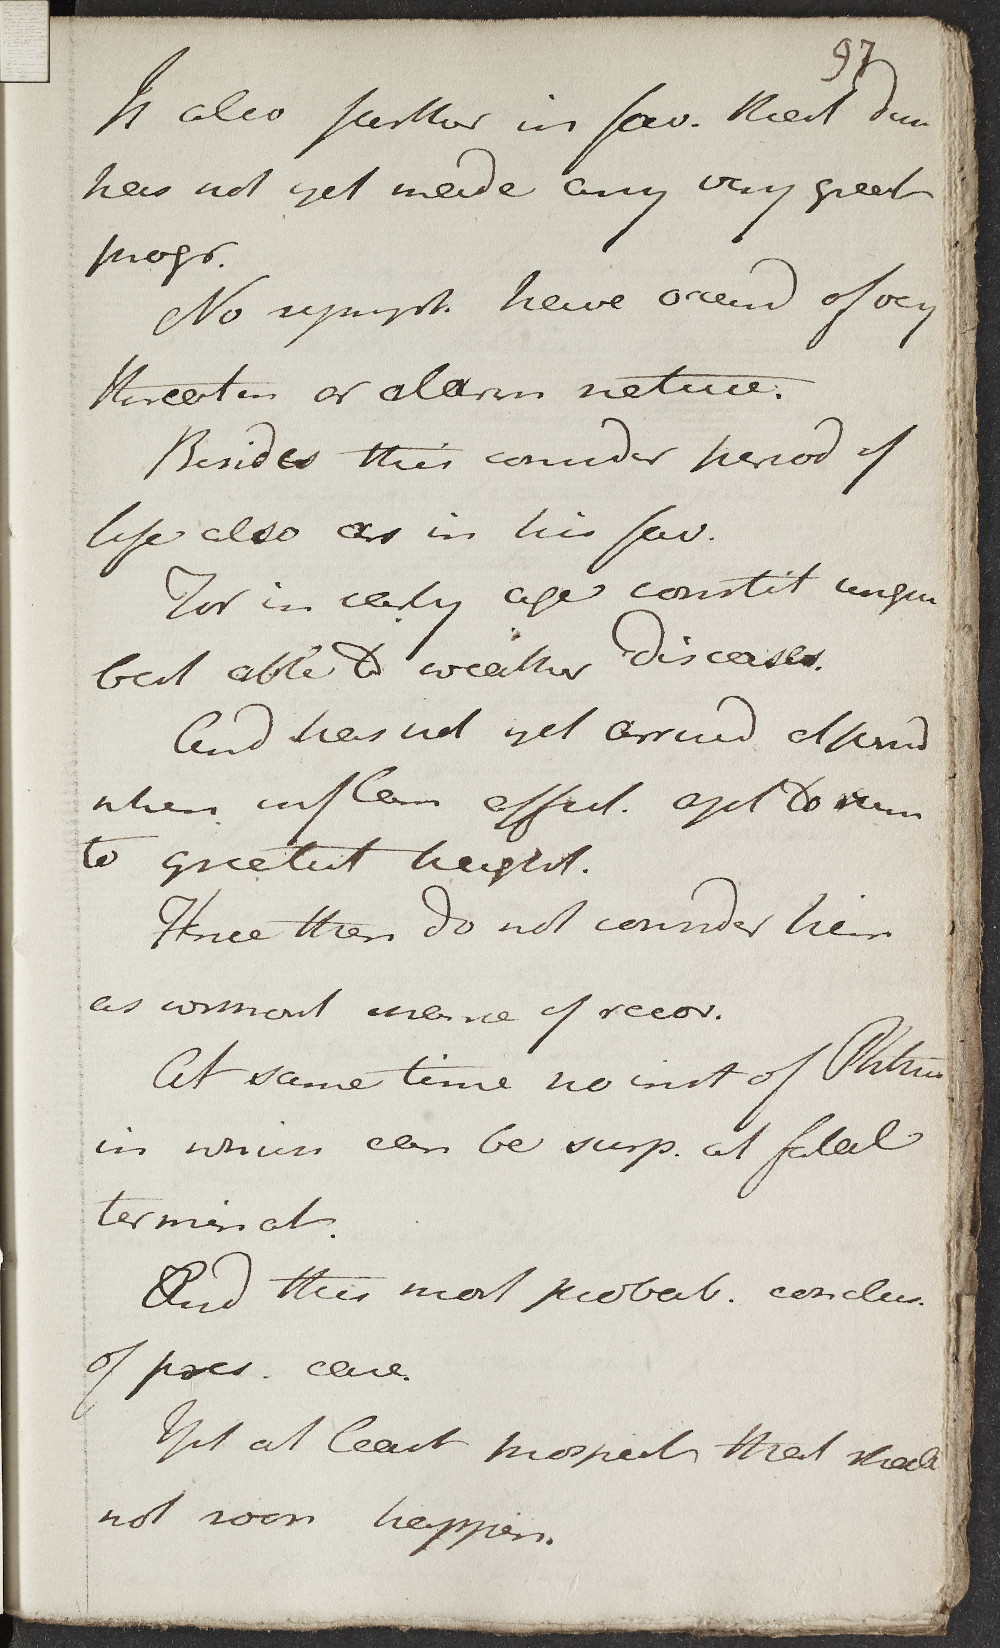 97
Is also further in fav. that dis
has not yet made any very great
progr.
No sympt. have occurd of vey
threaten or alarm nature.
Besides this consider period of
life also as in his fav.
For in early age constit
best able to weather diseases.
And has not yet arrived at period
when inflam affect. apt to run
to greatest height.
Hence then do not consider him
as without chance of recov.
At same time no inst of Phthis
in which can be surp. at fatal
terminat.
And this most probab. conclus.
of pres. case.
Yet at least prospect that shall
not soon happen.